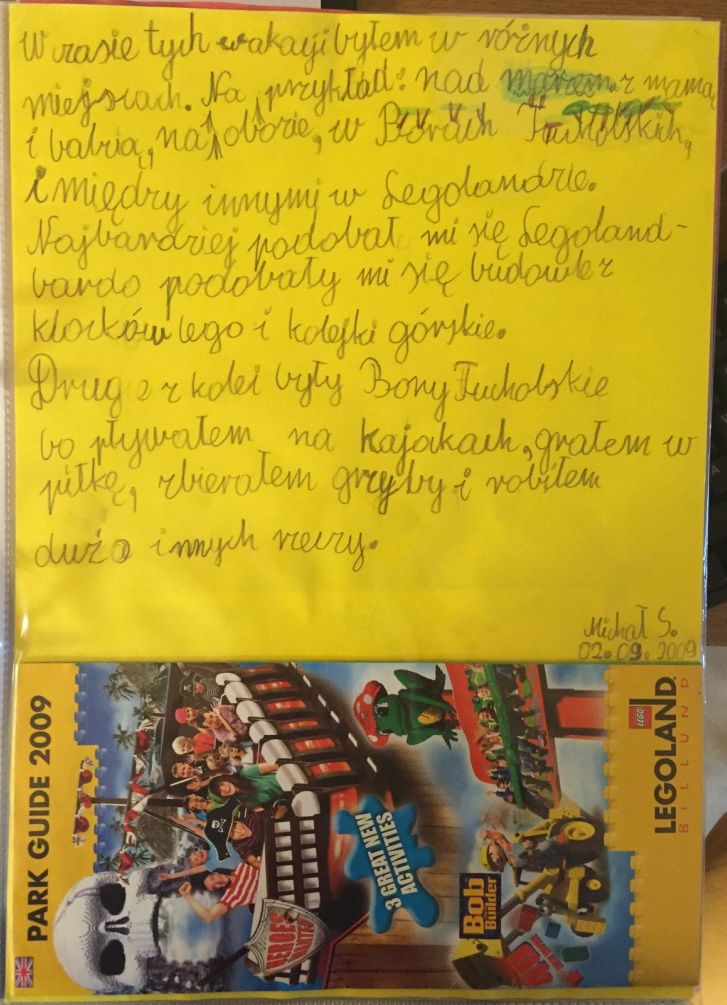 W czasie tych wakacji byłem w różnych
miejscach. Na przykład: nad morzem z mamą
i babcią, na obozie, w Borach Tucholskich,
i między innymi w Legolandzie.
Najbardziej podobał mi się Legoland-
bardo podobały mi się budowle z
klocków lego i kolejki górskie.
Drugie z kolei były Bory Tucholskie
bo pływałem na kajakach, grałem w
piłkę, zbierałem grzyby i robiłem
dużo innych rzeczy.
Michał S.
02.09.2009
PARK GUIDE 2009
3 GREAT NEW
ACTIVITIES
Bob
the Builder
HEROES
LEGO
LEGOLAND
BILLUND